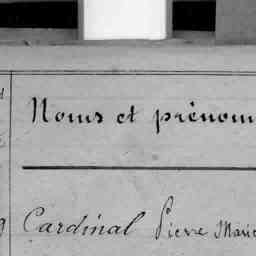 Noms et prénom
Cardinal Pierre Marie